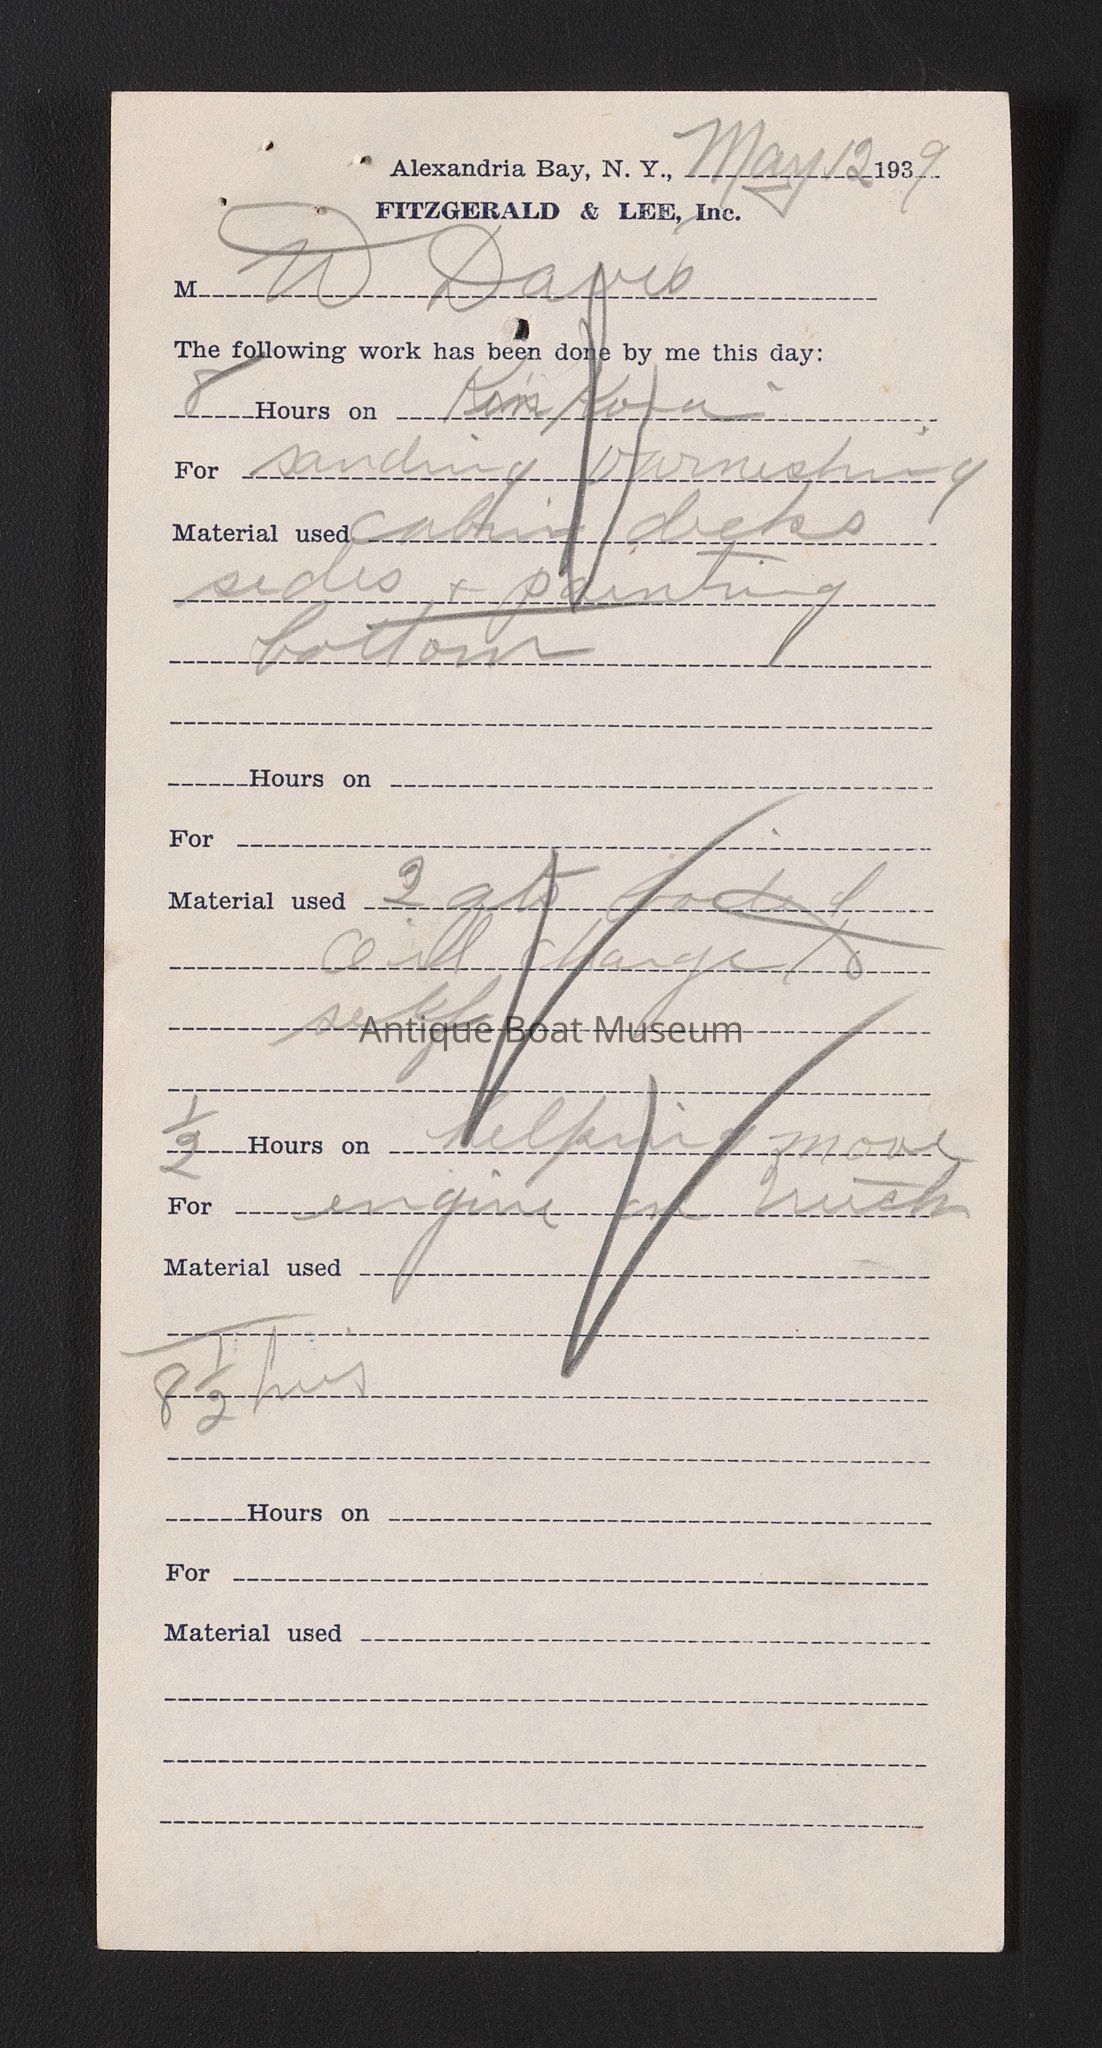 Alexandria Bay, N. Y., May 12 1939
FITZGERALD & LEE, Inc.
M W Davis
The following work has been done by me this day:
8 Hours on
For sanding varnishing
Material used cabin decks
sides + painting
bottom
Hours on
For
Material used 2 qts boiled
oil charge to
self
Antique Boat Museum
1/2 Hours on helping move
For engine on truck
Material used
8 1/2 hrs
Hours on
For
Material used